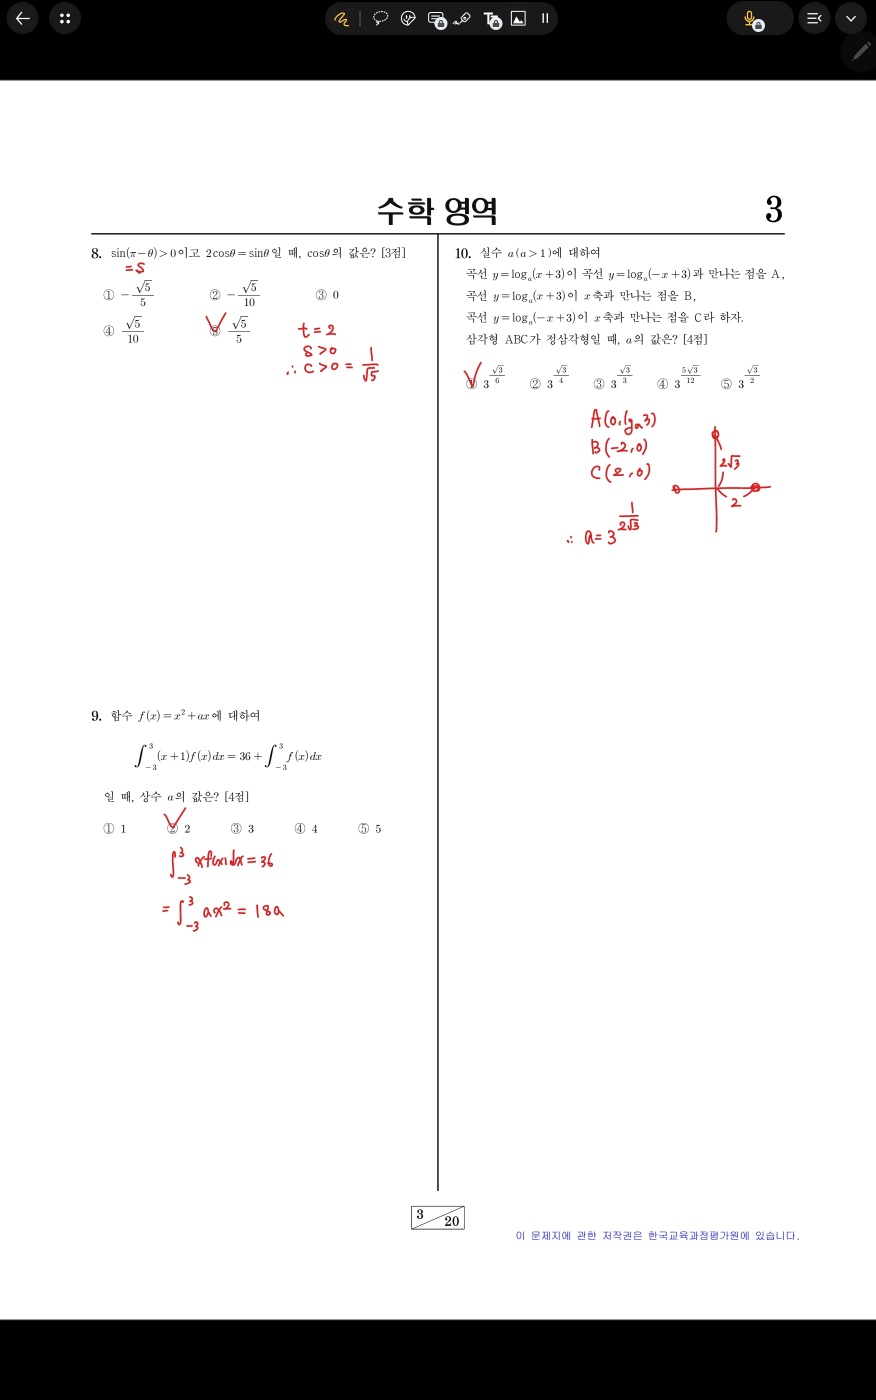 수학 영역
3
8. sin(π−θ)>0이고 2cosθ=sinθ일 때, cosθ의 값은? [3점]
=S
① −√5/5 ② −√5/10 ③ 0
④ √5/10 ⑤ √5/5
t=2
S>0
∴ C>0 = 1/√5
9. 함수 f(x)=x²+ax에 대하여
∫₋₃³(x+1)f(x)dx=36+∫₋₃³f(x)dx
일 때, 상수 a의 값은? [4점]
① 1 ② 2 ③ 3 ④ 4 ⑤ 5
∫₋₃³ xf(x)dx=36
=∫₋₃³ ax² = 18a
10. 실수 a(a>1)에 대하여
곡선 y=logₐ(x+3)이 곡선 y=logₐ(−x+3)과 만나는 점을 A,
곡선 y=logₐ(x+3)이 x축과 만나는 점을 B,
곡선 y=logₐ(−x+3)이 x축과 만나는 점을 C라 하자.
삼각형 ABC가 정삼각형일 때, a의 값은? [4점]
① 3^(√3/6) ② 3^(√3/4) ③ 3^(√3/3) ④ 3^(5√3/12) ⑤ 3^(√3/2)
A(0, lgₐ3)
B(-2, 0)
C(2, 0)
2√3
2
∴ a=3^(1/2√3)
3/20
이 문제지에 관한 저작권은 한국교육과정평가원에 있습니다.